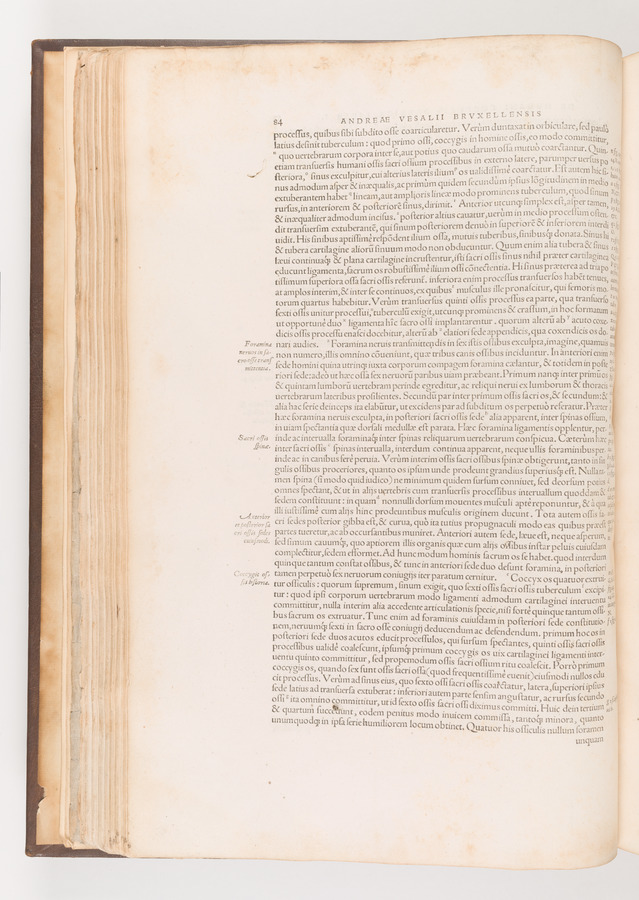 84 ANDREAE VESALII BRVXELLENSIS
processus, quibus sibi subdito osse coarticularetur. Verùm duntaxat in orbiculare, sed paruũ
latius desinit tuberculum: quod primo ossi, coccygis in homine ossis, eo modo committitur,
quo uertebrarum corpora inter se, aut potius quo caudarum ossa mutuò coarctantur. Quin
etiam transuersis humani ossis sacri ossium processibus in externo latere, parumper uersus po
steriora, sinus exculpitur, cui alterius lateris ilium os ualidissimè coarctatur. Est autem hic si-
nus admodum asper & inæqualis, ac primùm quidem secundùm ipsius lõgitudinem in medio
extuberantem habet lineam, aut amplioris lineæ modo prominens tuberculum, quod sinum
rursus, in anteriorem & posteriorẽ sinus, dirimit. Anterior utcunq; simplex est, asper tamen,
& inæqualiter admodum incisus. posterior altius cauatur, uerùm in medio processum osten-
dit transuersim extuberantẽ, qui sinum posteriorem denuò in superiorẽ & inferiorem interdi
uidit. His sinibus aptissimè respõdent ilium ossa, mutuis tuberibus, sinibusq; donata. Sinus hi
& tubera cartilagine aliorũ sinuum modo non obducuntur. Quum enim alia tubera & sinus
læui continuaq; & plana cartilagine incrustentur, isti sacri ossis sinus nihil præter cartilagineã
educunt ligamenta, sacrum os robustissimè ilium ossi cõnectentia. His sinus præterea ad tria po
tissimum superiora ossa sacri ossis referunt. inferiora enim processus transuersos habẽt tenues,
at amplos interim, & inter se continuos, ex quibus musculus ille pronascitur, qui femoris mo-
torum quartus habebitur. Verùm transuersus quinti ossis processus ea parte, qua transuerso
sexti ossis unitur processui, tuberculũ exigit, utcunq; prominens & crassum, in hoc formatum
ut opportunè duo ligamenta hîc sacro ossi implantarentur. quorum alterũ ab acuto coxẽ-
dicis ossis processu enasci docebitur, alterũ ab elatiori sede appendicis, qua coxendicis os do-
nari audies. Foramina neruis transmittẽdis in sex istis ossibus exculpta, imagine, quamuis
non numero, illis omnino cõueniunt, quæ tribus canis ossibus inciduntur. In anteriori enim
sede homini quina utrinq; iuxta corporum compagem foramina cælantur, & totidem in poste
riori sede: adeò ut hæc ossa sex neruorũ paribus uiam præbeant. Primum nanq; inter primũ os
& quintam lumborũ uertebram perinde egreditur, ac reliqui nerui ex lumborum & thoracis
uertebrarum lateribus prosilientes. Secundũ par inter primum ossis sacri os, & secundum: &
alia hac serie deinceps ita elabũtur, ut excidens par ad subditum os perpetuò referatur. Præter
hæc foramina neruis exculpta, in posteriori sacri ossis sede alia apparent, inter spinas ossium,
in uiam spectantia quæ dorsali medullæ est parata. Hæc foramina ligamentis opplentur, per-
inde ac interualla foraminaq; inter spinas reliquarum uertebrarum conspicua. Cæterùm hæc
inter sacri ossis spinas interualla, interdum continua apparent, neque ullis foraminibus per-
inde ac in canibus ferè peruia. Verùm interim ossis sacri ossibus spinæ obtigerunt, tanto in sin
gulis ossibus proceriores, quanto os ipsum unde prodeunt grandius superiusq; est. Nulla ta-
men spina (si modo quid iudico) ne minimum quidem sursum conniuet, sed deorsum potius
omnes spectant, & ut in alijs uertebris cum transuersis processibus interuallum quoddam &
sedem constituunt: in quam nonnulli dorsum mouentes musculi aptè reponuntur, & à qua
illi iustissimè cum alijs hinc prodeuntibus musculis originem ducunt. Tota autem ossis sa-
cri sedes posterior gibba est, & curua, quò ita tutius propugnaculi modo eas quibus præest
partes tueretur, ac ab occursantibus muniret. Anterior autem sede, læue est, neque asperum,
sed simum cauumq;, quo aptiorem illis organis quæ cum alijs ossibus instar peluis cuiusdam
complectitur, sedem efformet. Ad hunc modum hominis sacrum os se habet. quod interdum
quinque tantum constat ossibus, & tunc in anteriori sede duo desunt foramina, in posteriori
tamen perpetuò sex neruorum coniugijs iter paratum cernitur. Coccyx os quatuor extrui-
tur ossiculis: quorum supremum, sinum exigit, quo sexti ossis sacri ossis tuberculum excipi-
tur: quod ipsi corporum uertebrarum modo ligamenti admodum cartilaginei interuentu
committitur, nulla interim alia accedente articulationis specie, nisi fortè quinque tantum ossi-
bus sacrum os extruatur. Tunc enim ad foraminis cuiusdam in posteriori sede constitutio-
nem, neruumq; sexti in sacro osse coniugij deducendum ac defendendum. primum hoc os in
posteriori sede duos acutos educit processulos, qui sursum spectantes, quinti ossis sacri ossis
processibus ualidè coalescunt, ipsumq; primum coccygis os uix cartilaginei ligamenti inter-
uentu quinto committitur, sed propemodum ossis sacri ossium ritu coalescit. Porrò primum
coccygis os, quando sex sunt ossis sacri ossa (quod frequentissimè euenit) eiusmodi nullos edu
cit processus. Verùm ad sinus eius, quo sexto ossi sacri ossis coarctatur, latera, superiori ipsius
sede latius ad transuersa extuberat: inferiori autem parte sensim angustatur, ac rursus secundo
ossi ita omnino committitur, ut id sexto ossis sacri ossi diximus committi. Huic dein tertium
& quartum succedunt, eodem penitus modo inuicem commissa, tantoq; minora, quanto
unumquodq; in ipsa serie humiliorem locum obtinet. Quatuor his ossiculis nullum foramen
unquam
Foramina
neruis in sa-
cro osse trans
mittendis.
Sacri ossis
spinæ.
Anterior
et posterior sa
cri ossis sedes
cuiusmodi.
Coccygis of-
sis historia.